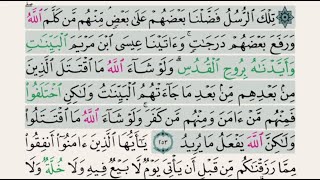 تِلْكَ ٱلرُّسُلُ فَضَّلْنَا بَعْضَهُمْ عَلَىٰ بَعْضٍ مِّنْهُم مَّن كَلَّمَ ٱللَّهُ
وَرَفَعَ بَعْضَهُمْ دَرَجَٰتٍ وَءَاتَيْنَا عِيسَى ٱبْنَ مَرْيَمَ ٱلْبَيِّنَٰتِ
وَأَيَّدْنَٰهُ بِرُوحِ ٱلْقُدُسِ وَلَوْ شَآءَ ٱللَّهُ مَا ٱقْتَتَلَ ٱلَّذِينَ
مِنۢ بَعْدِهِم مِّنۢ بَعْدِ مَا جَآءَتْهُمُ ٱلْبَيِّنَٰتُ وَلَٰكِنِ ٱخْتَلَفُوا۟
فَمِنْهُم مَّنْ ءَامَنَ وَمِنْهُم مَّن كَفَرَ وَلَوْ شَآءَ ٱللَّهُ مَا ٱقْتَتَلُوا۟
وَلَٰكِنَّ ٱللَّهَ يَفْعَلُ مَا يُرِيدُ ٢٥٣ يَٰٓأَيُّهَا ٱلَّذِينَ ءَامَنُوٓا۟ أَنفِقُوا۟
مِمَّا رَزَقْنَٰكُم مِّن قَبْلِ أَن يَأْتِىَ يَوْمٌ لَّا بَيْعٌ فِيهِ وَلَا خُلَّةٌ وَلَا